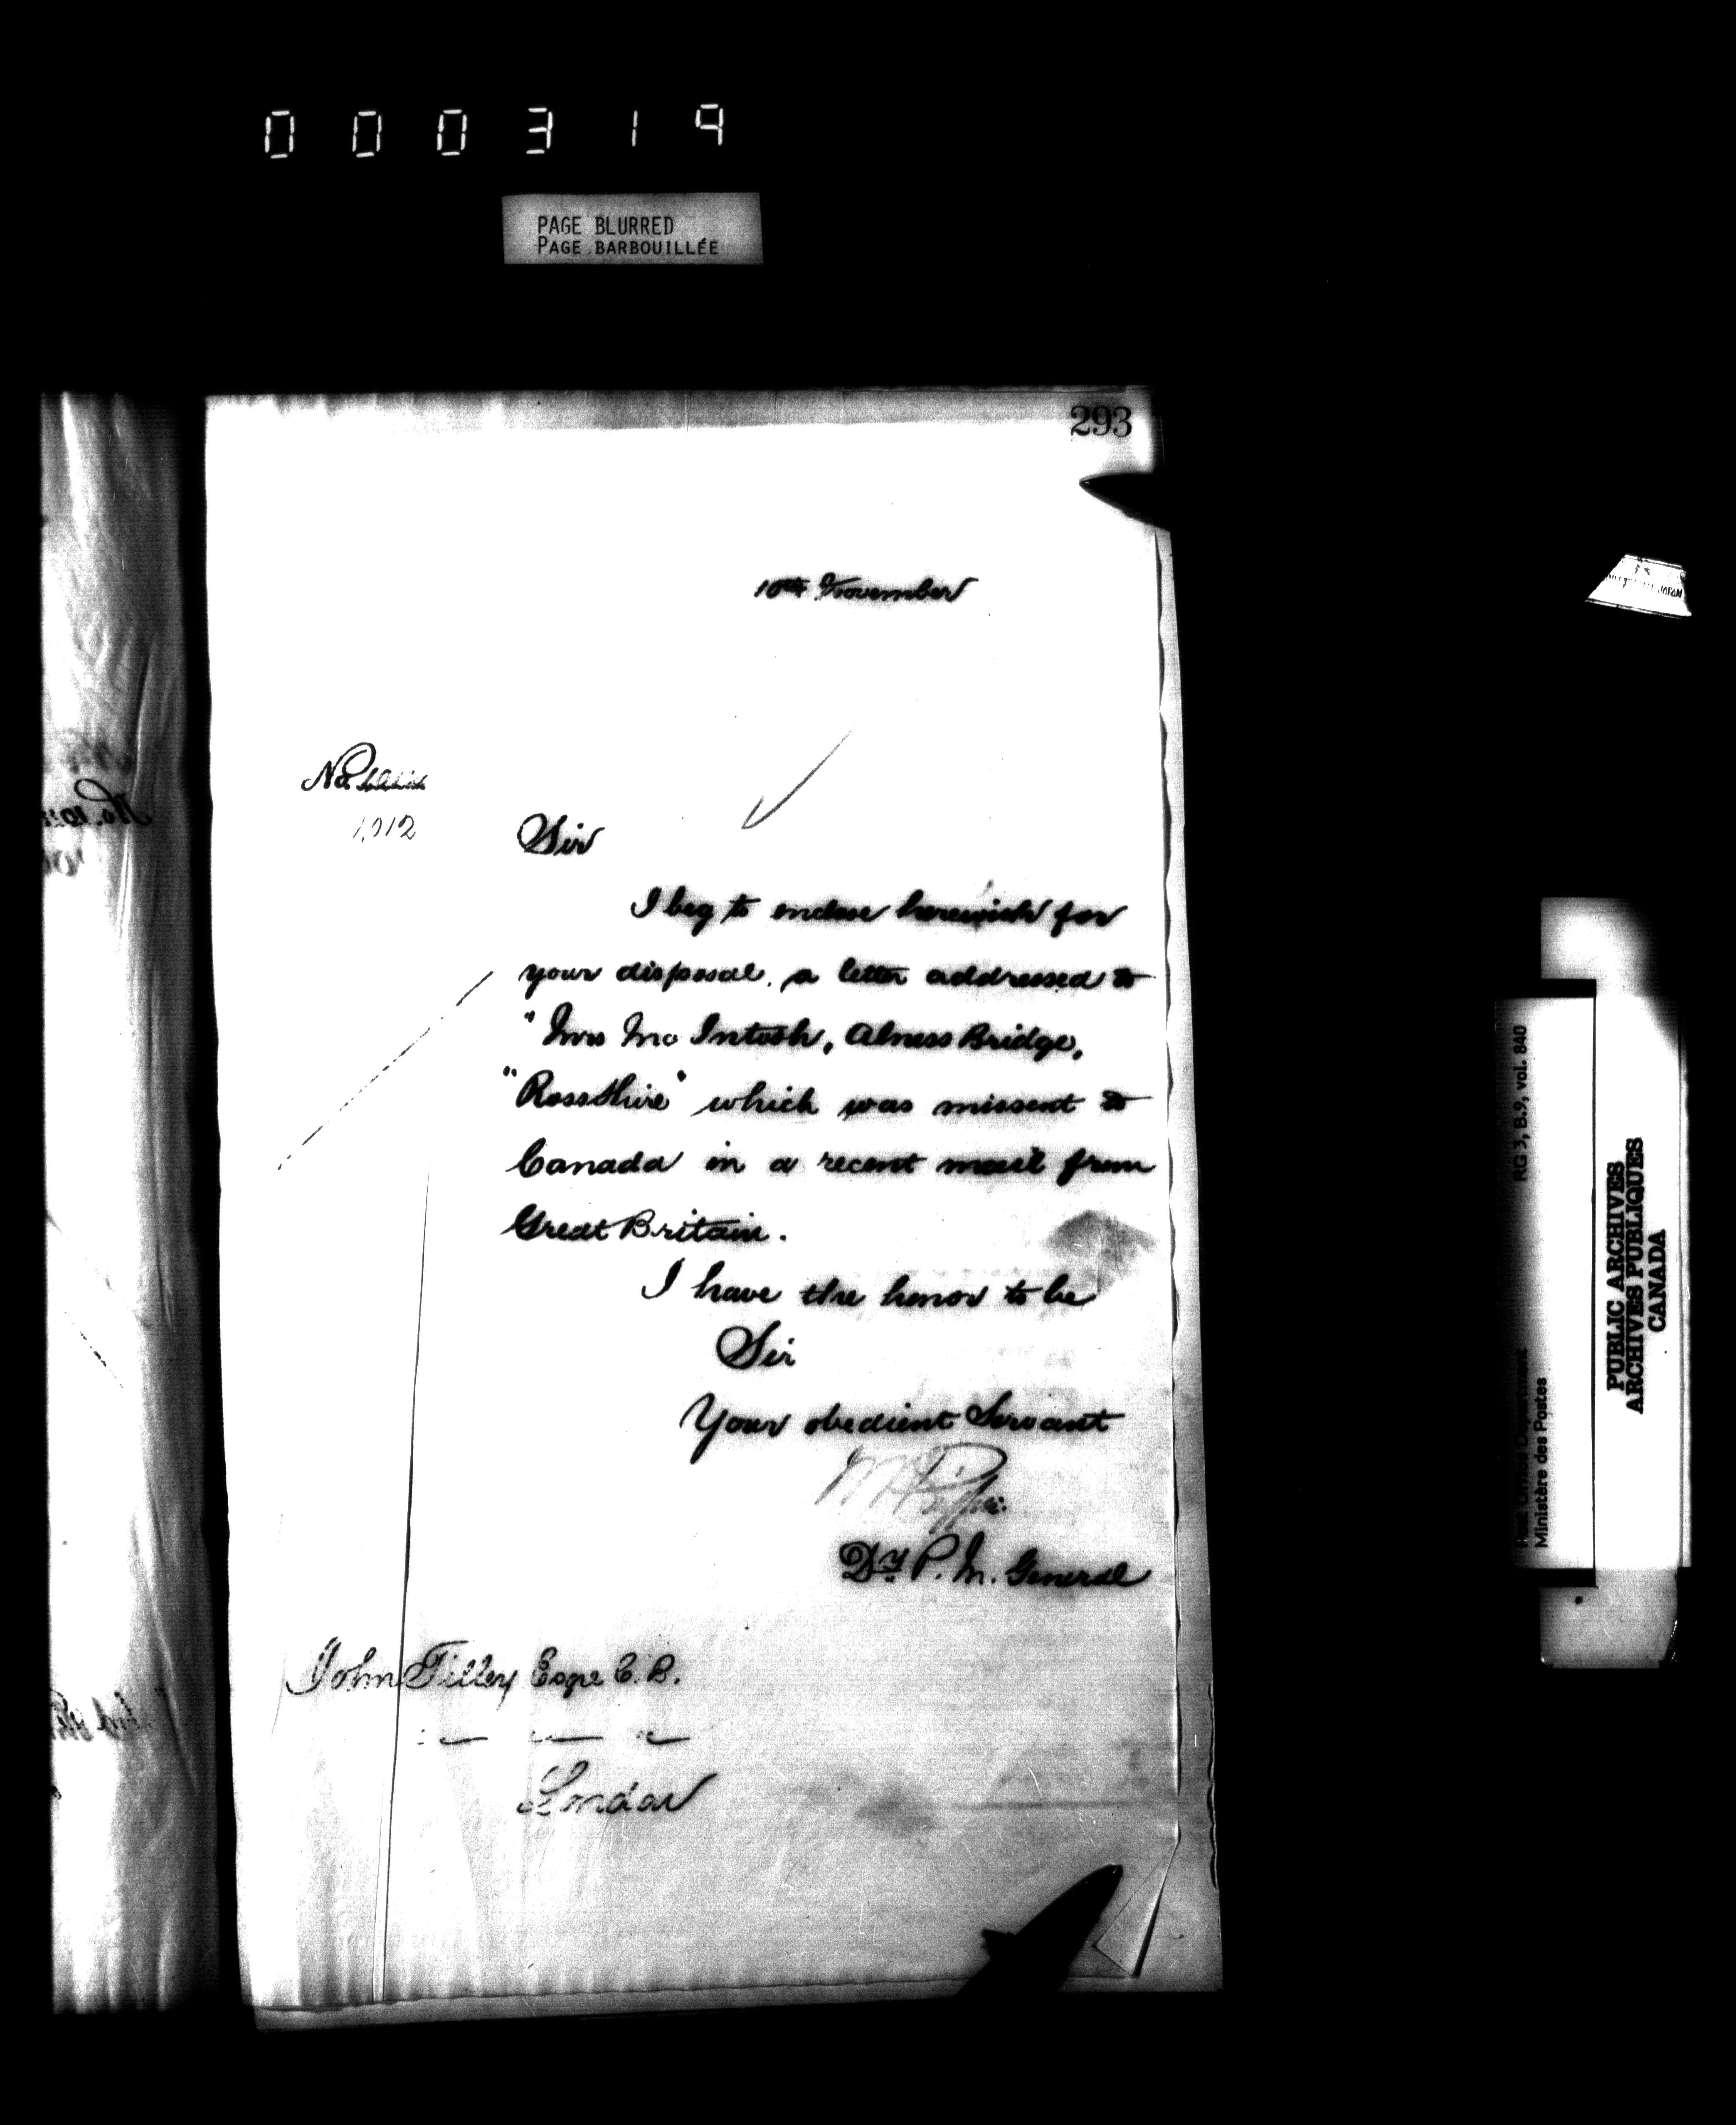 000319
PAGE BLURRED
PAGE BARBOUILLÉE
293
10th November
No.
1,012
Sir
I beg to enclose herewith for
your disposal, a letter addressed to
"Mrs McIntosh, Alness Bridge,
"Rosshire" which was missent to
Canada in a recent mail from
Great Britain.
I have the honor to be
Sir
Your obedient Servant
Dy P. M. General
John Tilley Esqre C. B.
London
RG 3, B.9, vol. 840
Post Office Department
Ministère des Postes
PUBLIC ARCHIVES
ARCHIVES PUBLIQUES
CANADA